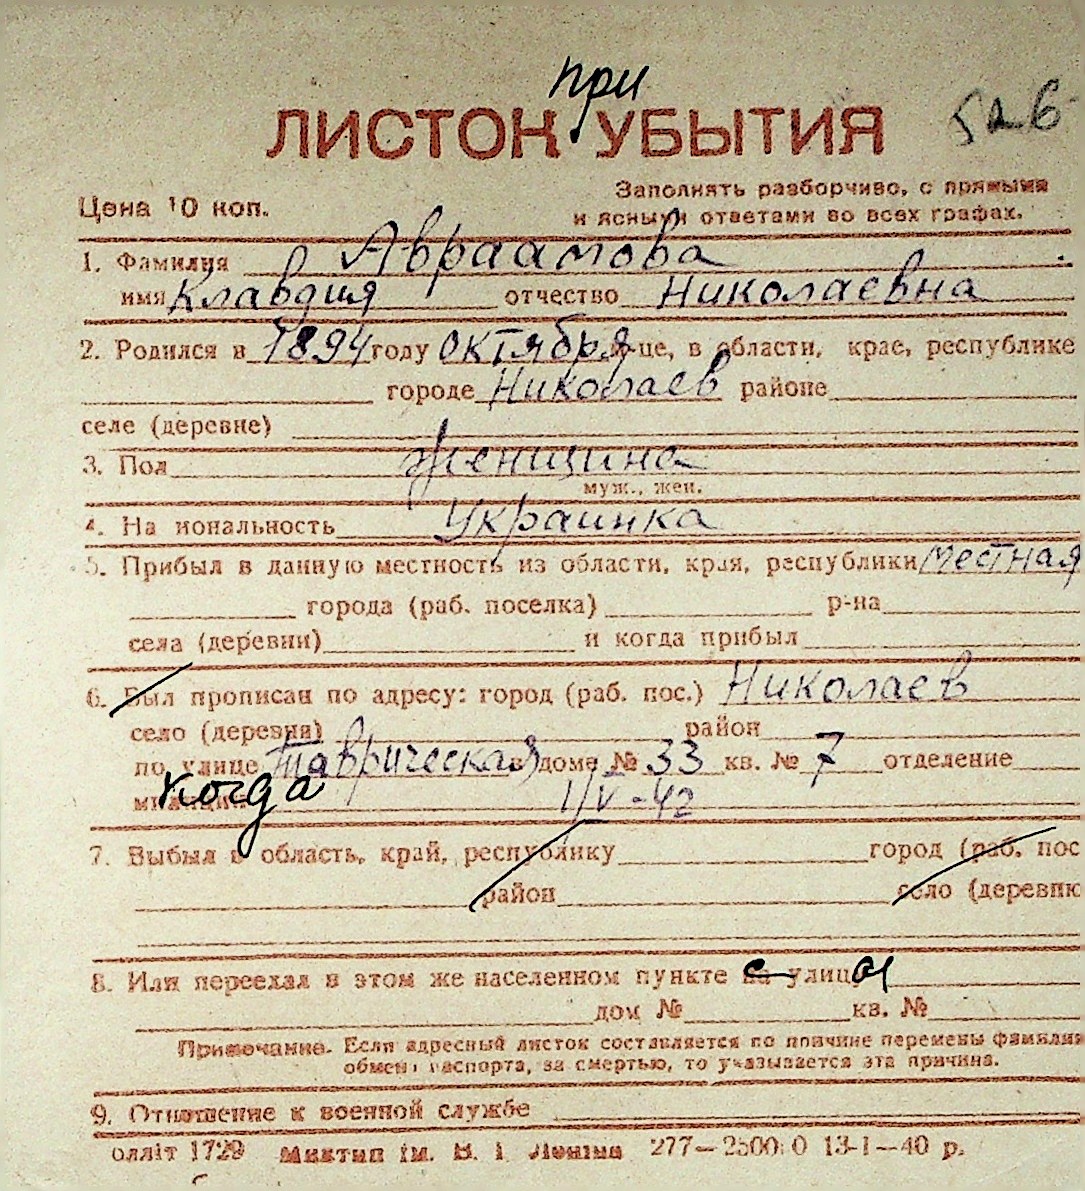 при
ЛИСТОК УБЫТИЯ 526
Цена 10 коп. Заполнять разборчиво, с прямыми
и ясными ответами во всех графах.
1. Фамилия Авраамова
имя Клавдия отчество Николаевна
2. Родился в 1894 году октября м-це, в области, крае, республике
городе Николаев районе
селе (деревне)
3. Пол женщина
муж., жен.
4. На иональность украинка
5. Прибыл в данную местность из области, края, республики местная
города (раб. поселка) р-на
села (деревни) и когда прибыл
6. Был прописан по адресу: город (раб. пос.) Николаев
село (деревня) район
по улице Таврическая в доме № 33 кв. № 7 отделение
милиции когда 1/V-42
7. Выбыл в область, край, республику город (раб. пос
район село (деревню
8. Или переехал в этом же населенном пункте с на улицы
дом № кв. №
Примечание. Если адресный листок составляется по причине перемены фамилии
обмена паспорта, за смертью, то указывается эта причина.
9. Отношение к военной службе
олліт 1729 Миктип ім. В. І Леніна 277—2500 0 13-I—40 р.